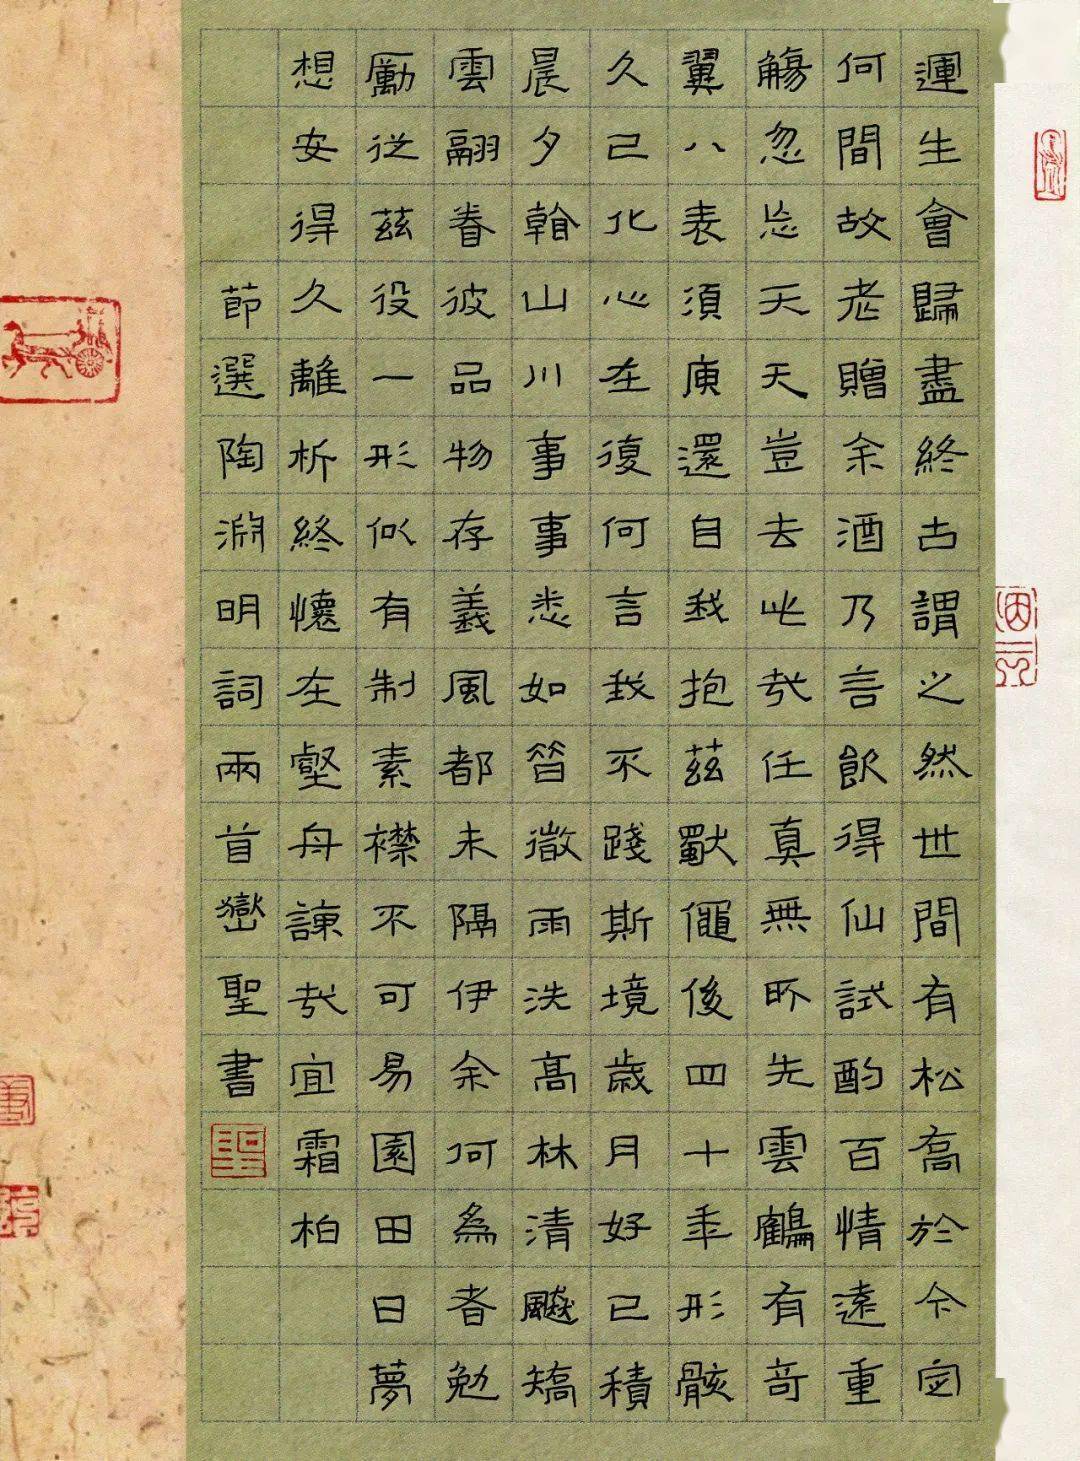 運生會歸盡終古謂之然世間有松喬於今定
何間故老贈余酒乃言飲得仙試酌百情遠重
觴忽忘天天豈去此哉任真無所先雲鶴有奇
翼八表須臾還自我抱茲獨僶後四十年形骸
久已化心在復何言我不踐斯境歲月好已積
晨夕看山川事事悉如昔微雨洗高林清飆矯
雲翮眷彼品物存義風都未隔伊余何為者勉
勵從茲役一形似有制素襟不可易園田日夢
想安得久離析終懷在壑舟諒哉宜霜柏
節選陶淵明詞兩首聖書